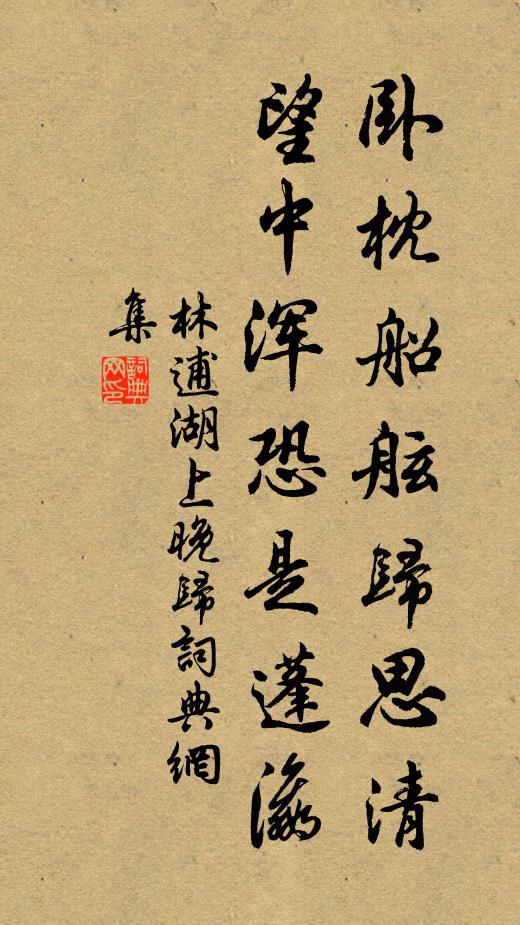 卧枕船舷歸思清
望中渾恐是蓬瀛
林逋湖上晚歸詞典網
集
詞典
网印